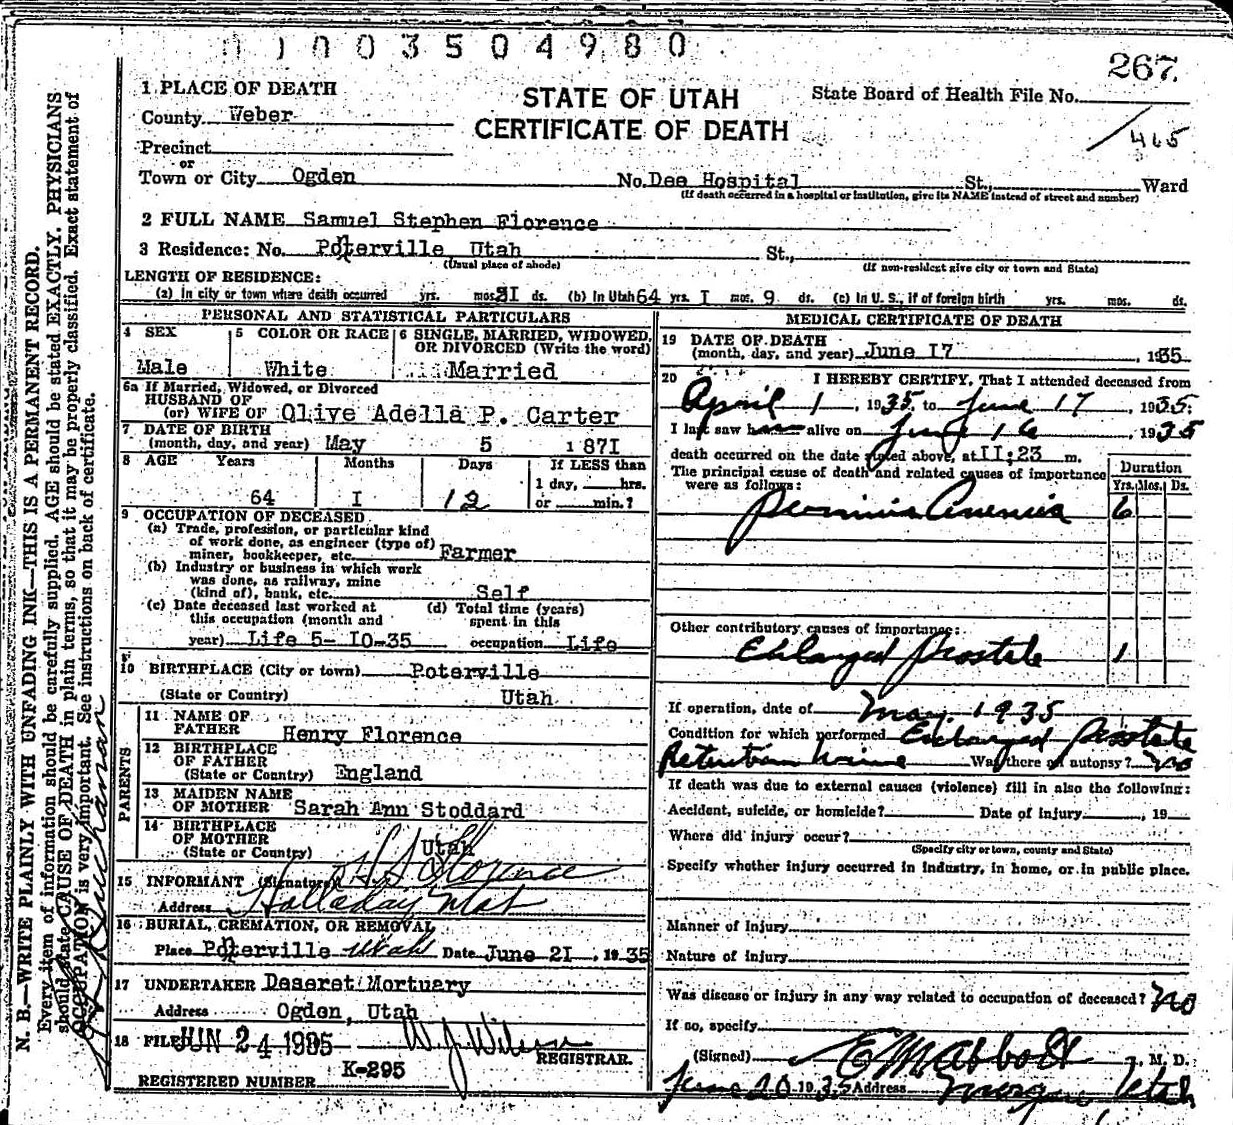 01003504980
267.
1 PLACE OF DEATH
STATE OF UTAH
CERTIFICATE OF DEATH
State Board of Health File No.
465
County Weber
Precinct
or
Town or City Ogden No. Dee Hospital St., Ward
(If death occurred in a hospital or institution, give its NAME instead of street and number)
2 FULL NAME Samuel Stephen Florence
3 Residence: No. Poterville Utah St.,
(Usual place of abode) (If non-resident give city or town and State)
LENGTH OF RESIDENCE:
(a) In city or town where death occurred yrs. mos. 21 ds. (b) In Utah 64 yrs. I mos. 9 ds. (c) In U. S., if of foreign birth yrs. mos. ds.
PERSONAL AND STATISTICAL PARTICULARS
4 SEX
Male
5 COLOR OR RACE
White
6 SINGLE, MARRIED, WIDOWED, OR DIVORCED (Write the word)
Married
6a If Married, Widowed, or Divorced
HUSBAND OF
(or) WIFE OF Olive Adella P. Carter
7 DATE OF BIRTH
(month, day, and year) May 5 1871
8 AGE Years Months Days If LESS than
1 day, hrs.
64 I 12 or min.?
9 OCCUPATION OF DECEASED
(a) Trade, profession, or particular kind
of work done, as engineer (type of)
miner, bookkeeper, etc. Farmer
(b) Industry or business in which work
was done, as railway, mine
(kind of), bank, etc. Self
(c) Date deceased last worked at
this occupation (month and
year) Life 5-10-35
(d) Total time (years)
spent in this
occupation Life
10 BIRTHPLACE (City or town) Poterville
(State or Country) Utah
PARENTS
11 NAME OF
FATHER Henry Florence
12 BIRTHPLACE
OF FATHER
(State or Country) England
13 MAIDEN NAME
OF MOTHER Sarah Ann Stoddard
14 BIRTHPLACE
OF MOTHER
(State or Country) Utah
15 INFORMANT (Signature) Florence
Address Holladay
16 BURIAL, CREMATION, OR REMOVAL
Place Poterville Utah Date June 21, 1935
17 UNDERTAKER Deseret Mortuary
Address Ogden, Utah
18 FILED JUN 24 1935 W. J. Wilson
REGISTRAR.
K-295
REGISTERED NUMBER
MEDICAL CERTIFICATE OF DEATH
19 DATE OF DEATH
(month, day, and year) June 17, 1935
20 I HEREBY CERTIFY, That I attended deceased from
April 1, 1935, to June 17, 1935;
I last saw h alive on June 16, 1935
death occurred on the date stated above, at 11:23 m.
The principal cause of death and related causes of importance
were as follows:
Duration
Yrs. Mos. Ds.
Anemia 6
Other contributory causes of importance:
Enlarged Prostate 1
If operation, date of May. 1935
Condition for which performed Enlarged prostate
Retention Urine Was there an autopsy? No
If death was due to external causes (violence) fill in also the following:
Accident, suicide, or homicide? Date of injury , 19
Where did injury occur?
(Specify city or town, county and State)
Specify whether injury occurred in industry, in home, or in public place.
Manner of injury
Nature of injury
Was disease or injury in any way related to occupation of deceased? No
If so, specify
(Signed) E M Abbott, M. D.
June 20 1935 Address Morgan Utah
N. B.—WRITE PLAINLY WITH UNFADING INK—THIS IS A PERMANENT RECORD.
Every item of information should be carefully supplied. AGE should be stated EXACTLY. PHYSICIANS
should state CAUSE OF DEATH in plain terms, so that it may be properly classified. Exact statement of
OCCUPATION is very important. See instructions on back of certificate.